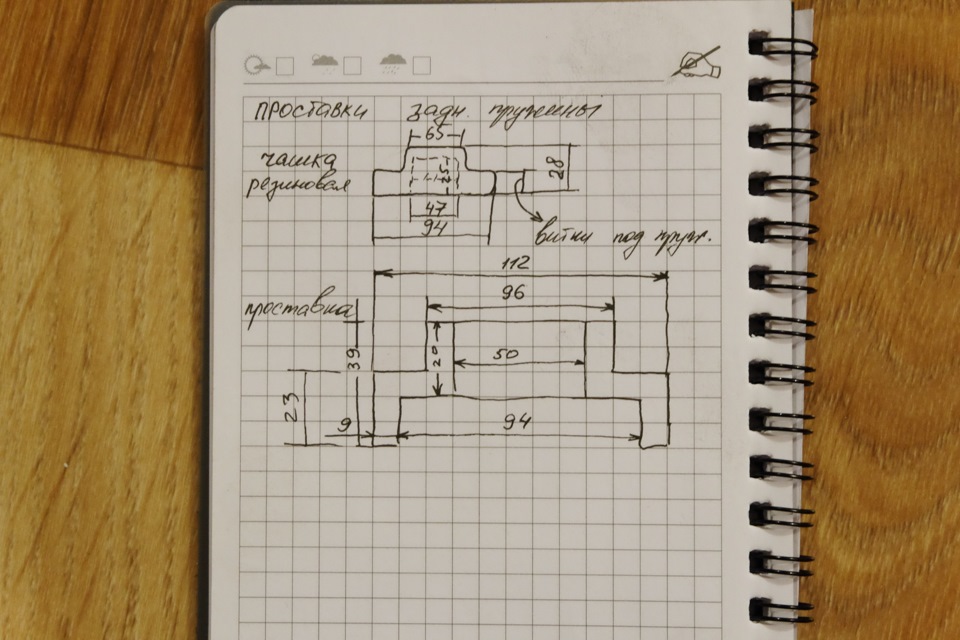 проставки задн. пружины
65
чашка
резиновая
25
28
47
94
витки под пруж.
112
96
проставка
39
20
50
23
9
94